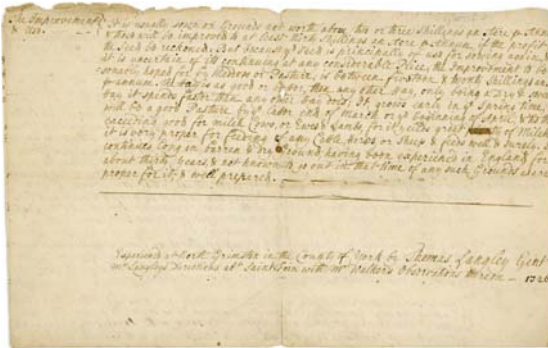 The Improvement & Use.
It is usually sown on Grounds not worth above two or three shillings an Acre p Annum
& thereby will be improved to at least thirty shillings an Acre p Annum, if the profit of
the Seed be reckoned. But because such is principally of use for sowing again, &
it is uncertain of its continuing at any considerable Price, the Improvement to be
hoped for by Meadow or Pasture, is between fifteen & twenty shillings an
p annum. The Hay is as good or better, than any other Hay, only being a Dry & sweet
Hay it spends faster than any other Hay does. It grows early in ye Spring time, &
will be a good Pasture by ye latter end of March or ye beginning of April, & is then
exceeding good for milch Cows, or Ewes & Lambs, for it yields great of Milk
it is very proper for feeding of any Cattle, Horses or Sheep & feeds well & surely. It
continues long in barren & dry Ground, having been experience in England for
about thirty years, & not known to go out in that time of any such Grounds were
proper for it, & well prepared.
Experienced at North Grimston in the County of York by Thomas Langley Gent
Mr Langleys Directions abt Saintfoin with Mr Walkers Observations thereon - 172